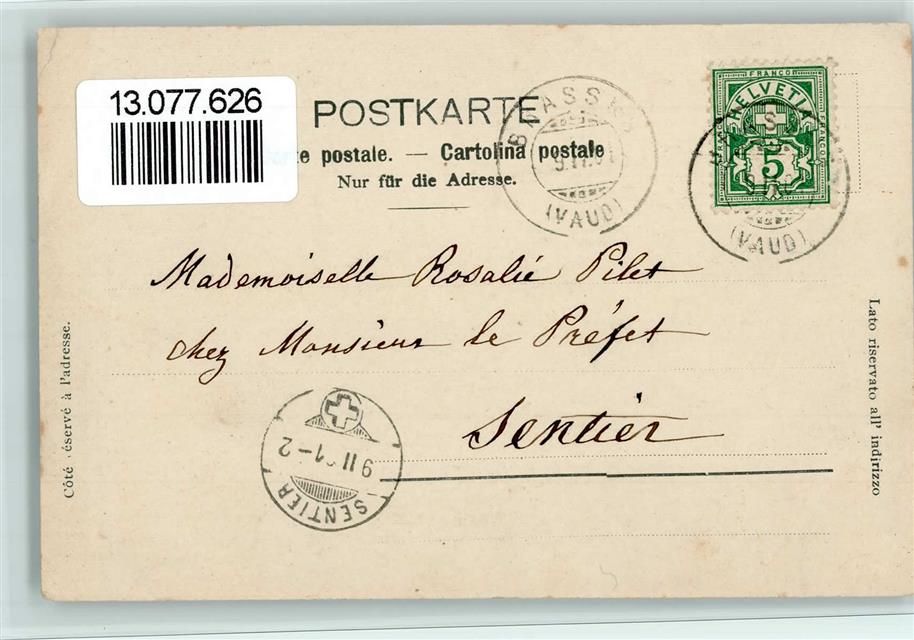 13.077.626
POSTKARTE
te postale. — Cartolina postale
Nur für die Adresse.
BRASSUS
(VAUD)
FRANCO
HELVETIA
FRANCO
FRANCO
5
(VAUD)
Mademoiselle Rosalié Pilet
chez Monsieur le Préfet
Sentier
9 II 01-2
SENTIER
Côté réservé à l'adresse.
Lato riservato all' indirizzo